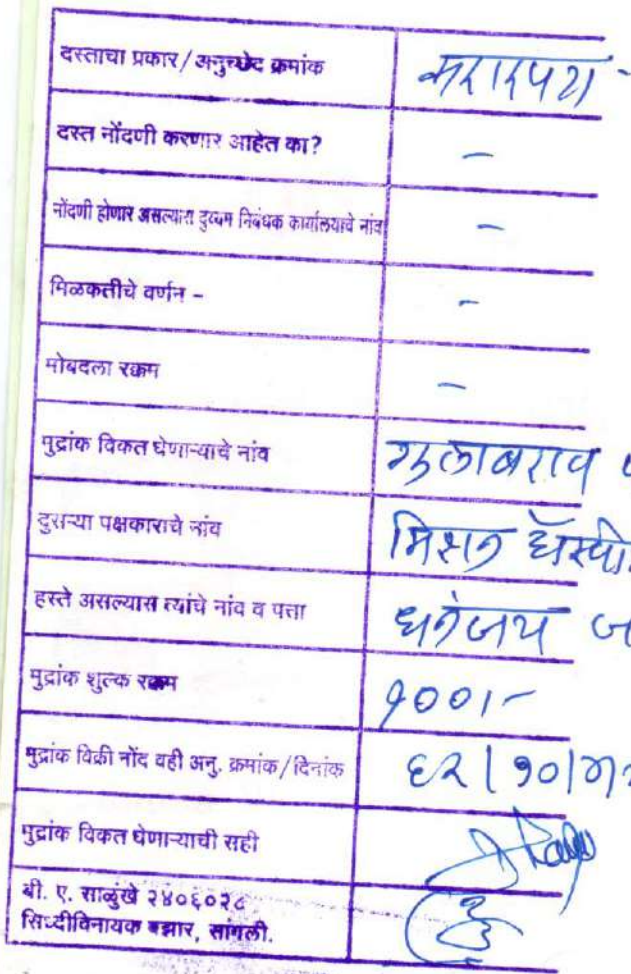 दस्ताचा प्रकार/अनुच्छेद क्रमांक करारपत्र
दस्त नोंदणी करणार आहेत का? -
नोंदणी होणार असल्यास दुय्यम निबंधक कार्यालयाचे नांव -
मिळकतीचे वर्णन - -
मोबदला रक्कम -
मुद्रांक विकत घेणाऱ्याचे नांव गुलाबराव
दुसऱ्या पक्षकाराचे नांव मिशन हॉस्पी
हस्ते असल्यास त्यांचे नांव व पत्ता धनंजय ज
मुद्रांक शुल्क रक्कम १००/-
मुद्रांक विक्री नोंद वही अनु. क्रमांक/दिनांक
मुद्रांक विकत घेणाऱ्याची सही
बी. ए. साळुंखे २४०६०२८
सिध्दीविनायक बझार, सांगली.